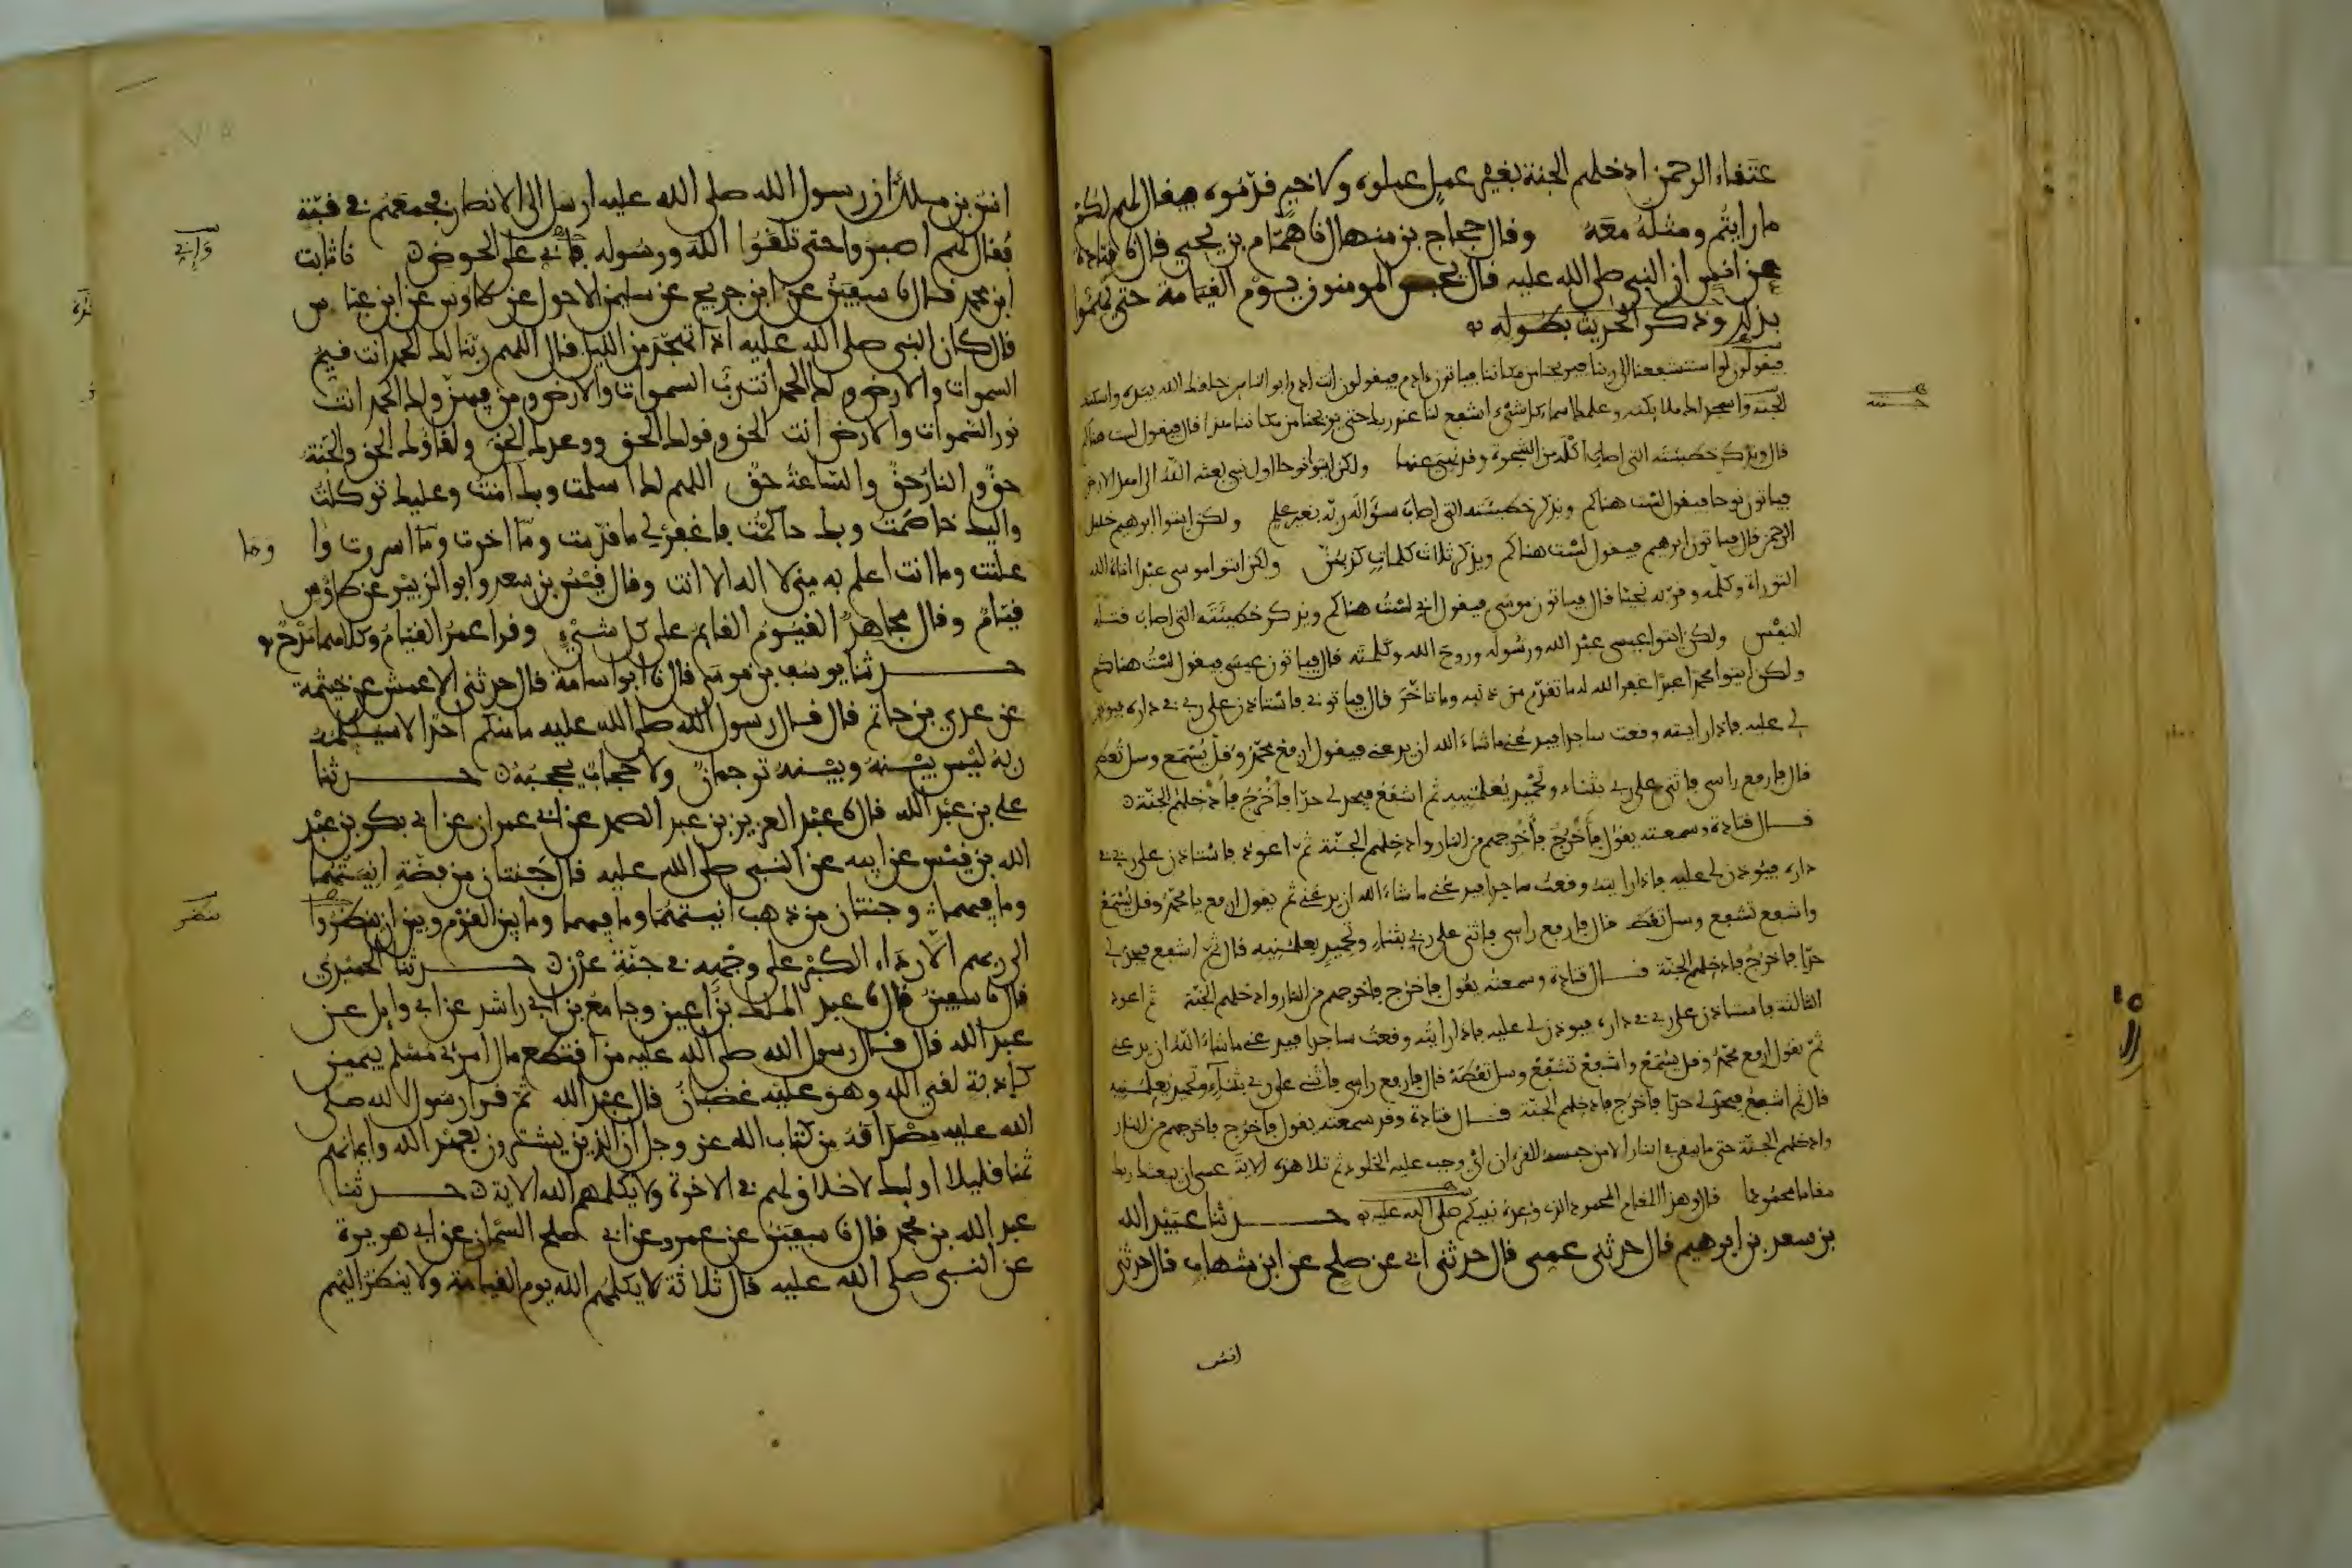 عتقاء الرحمن ادخلهم الجنة بغير عمل عملوه ولا خير قدموه فيقال لهم لكم
ما رايتم ومثله معه وقال حجاج بن منهال نا همام بن يحيى قال نا قتادة
عن انس ان النبي صلى الله عليه قال يحبس المومنون يوم القيامة حتى يهموا
بذلك وذكر الحديث بطوله
فيقولون لو استشفعنا الى ربنا فيريحنا من مكاننا فياتون ءادم فيقولون انت ادم ابو الناس خلقك الله بيده واسكنك
الجنة واسجد لك ملايكته وعلمك اسماء كل شيء اشفع لنا عند ربك حتى يريحنا من مكاننا هذا قال فيقول لست هناكم
قال ويذكر خطيئته التي اصاب اكله من الشجرة وقد نهي عنها ولكن ايتوا نوحا اول نبي بعثه الله الى اهل الارض
فياتون نوحا فيقول لست هناكم ويذكر خطيئته التي اصاب سؤاله ربه بغير علم ولكن ايتوا ابرهيم خليل
الرحمن قال فياتون ابرهيم فيقول لست هناكم ويذكر ثلاث كلمات كذبهن ولكن ايتوا موسى عبدا اتاه الله
التوراة وكلمه وقربه نجيا قال فياتون موسى فيقول اني لست هناكم ويذكر خطيئته التي اصاب قتله
النفس ولكن ايتوا عيسى عبد الله ورسوله وروح الله وكلمته قال فياتون عيسى فيقول لست هناكم
ولكن ايتوا محمدا عبدا غفر الله له ما تقدم من ذنبه وما تاخر قال فياتوني فاستاذن على ربي في داره فيوذن
لي عليه فاذا رايته وقعت ساجدا فيدعني ما شاء الله ان يدعني فيقول ارفع محمد وقل يسمع وسل تعط
قال فارفع راسي فاثني على ربي بثناء وتحميد يعلمنيه ثم اشفع فيحد لي حدا فاخرج فادخلهم الجنة
قال قتادة وسمعته يقول فاخرج فاخرجهم من النار وادخلهم الجنة ثم اعود فاستاذن على ربي في
داره فيوذن لي عليه فاذا رايته وقعت ساجدا فيدعني ما شاء الله ان يدعني ثم يقول ارفع يا محمد وقل يسمع
واشفع تشفع وسل تعط قال فارفع راسي فاثني على ربي بثناء وتحميد يعلمنيه قال ثم اشفع فيحد لي
حدا فاخرج فادخلهم الجنة قال قتادة وسمعته يقول فاخرج فاخرجهم من النار وادخلهم الجنة ثم اعود
الثالثة فاستاذن على ربي في داره فيوذن لي عليه فاذا رايته وقعت ساجدا فيدعني ما شاء الله ان يدعني
ثم يقول ارفع محمد وقل يسمع واشفع تشفع وسل تعطه قال فارفع راسي فاثني على ربي بثناء وتحميد يعلمنيه
قال ثم اشفع فيحد لي حدا فاخرج فادخلهم الجنة قال قتادة وقد سمعته يقول فاخرج فاخرجهم من النار
وادخلهم الجنة حتى ما يبقى في النار الا من حبسه القرءان اي وجب عليه الخلود ثم تلا هذه الاية عسى ان يبعثك ربك
مقاما محمودا قال وهذا المقام المحمود الذي وعده نبيكم صلى الله عليه حدثنا عبيد الله
بن سعد بن ابرهيم قال حدثني عمي قال حدثني ابي عن صلح عن ابن شهاب قال حدثني
انس
انس بن ملك ان رسول الله صلى الله عليه ارسل الى الانصار فجمعهم في قبة
فقال لهم اصبروا حتى تلقوا الله ورسوله فاني على الحوض نا ثابت
وإني
ابن محمد قال نا سفين عن ابن جريج عن سليمن الاحول عن طاوس عن ابن عباس
قال كان النبي صلى الله عليه اذا تهجد من الليل قال اللهم ربنا لك الحمد انت قيم
السموات والارض ولك الحمد انت رب السموات والارض ومن فيهن ولك الحمد انت
نور السموات والارض انت الحق وقولك الحق ووعدك الحق ولقاؤك الحق والجنة
حق والنار حق والساعة حق اللهم لك اسلمت وبك امنت وعليك توكلت
واليك خاصمت وبك حاكمت فاغفر لي ما قدمت وما اخرت وما اسررت وا
وما
علنت وما انت اعلم به مني لا اله الا انت وقال قيس بن سعد وابو الزبير عن طاوس
قيام وقال مجاهد القيوم القايم على كل شيء وقرا عمر القيام وكلاهما مدح
حدثنا يوسف بن موسى قال نا ابو اسامة قال حدثني الاعمش عن خيثمة
عن عدي بن حاتم قال قال رسول الله صلى الله عليه ما منكم احد الا سيكلمه
ربه ليس بينه وبينه ترجمان ولا حجاب يحجبه حدثنا
علي بن عبد الله قال نا عبد العزيز بن عبد الصمد عن ابي عمران عن ابي بكر بن عبد
الله بن قيس عن ابيه عن النبي صلى الله عليه قال جنتان من فضة انيتهما
وما فيهما وجنتان من ذهب انيتهما وما فيهما وما بين القوم وبين ان ينظروا
الى ربهم الا رداء الكبر على وجهه في جنة عدن حدثنا الحميدي
قال نا سفين قال نا عبد الملك بن اعين وجامع بن ابي راشد عن ابي وايل عن
عبد الله قال قال رسول الله صلى الله عليه من اقتطع مال امرئ مسلم بيمين
كاذبة لقي الله وهو عليه غضبان قال عبد الله ثم قرا رسول الله صلى
الله عليه مصداقه من كتاب الله عز وجل ان الذين يشترون بعهد الله وايمانهم
ثمنا قليلا اوليك لا خلاق لهم في الاخرة ولا يكلمهم الله الاية حدثنا
عبد الله بن محمد قال نا سفين عن عمرو عن ابي صلح السمان عن ابي هريرة
عن النبي صلى الله عليه قال ثلاثة لا يكلمهم الله يوم القيامة ولا ينظر اليهم